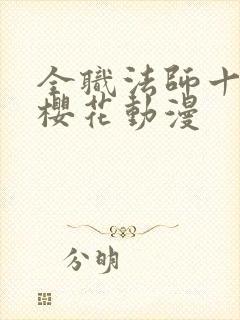 全職法師十
櫻花動漫
分明